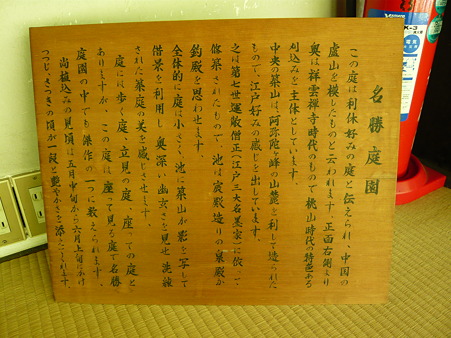 名勝庭園
この庭は利休好みの庭と伝えられ、中国の
盧山を模したものと云われます。正面右側より
奥は祥雲禅寺時代のもので桃山時代の特色ある
刈込みを主体としています。
中央の築山は、阿弥陀ヶ峰の山麓を利して造られた
もので、江戸好みの感じを出しています。
之は第七世運敞僧正(江戸三大名墨客)に依って、
修築されたもので、池は寝殿造りの泉殿か
釣殿を思わせます。
全体的に庭は小さく、池に築山が影を写して
借景を利用し、奥深い幽玄さを見せ、洗練
された築庭の美を感じさせます。
庭には歩く庭、立見の庭、座っての庭と
ありますが、この庭は、座って見る庭で名勝
庭園の中でも傑作の一つに数えられます。
尚植込みの見頃は五月中旬から六月上旬にかけ
つつじ、さつきの頃が一段と艶やかさを添えてくれます。
K-3